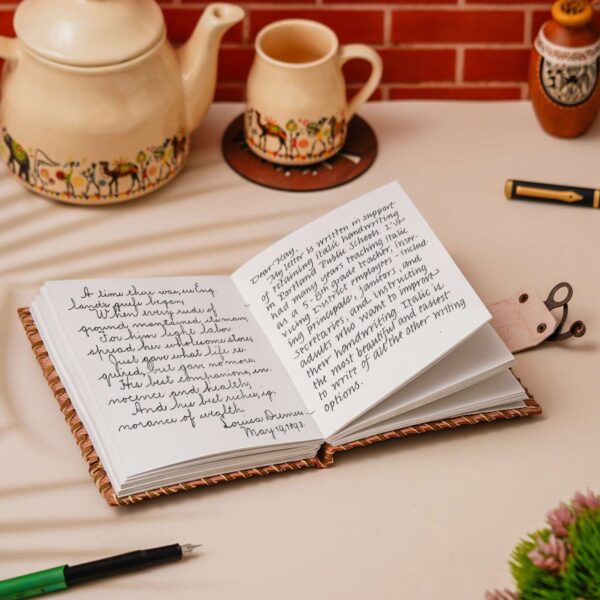 A time there was, ere Eng
lands griefs began,
When every rood of
ground maintained its man,
For him light labor
spread her wholesome store,
Just gave what life re
quired, but gave no more.
His best companions, in
nocence and health,
And his best riches, ig
norance of wealth.
Louisa
May 19, 1893.
Dear Kay,
My letter is written in support
of retaining italic handwriting
in Portland Public Schools. I've
had many years teaching italic
as a 5-8th grade teacher, inser-
vicing District employees - includ-
ing principals, janitors, and
secretaries, and instructing
adults who want to improve
their handwriting. Italic is
the most beautiful and easiest
to write of all the other writing
options.